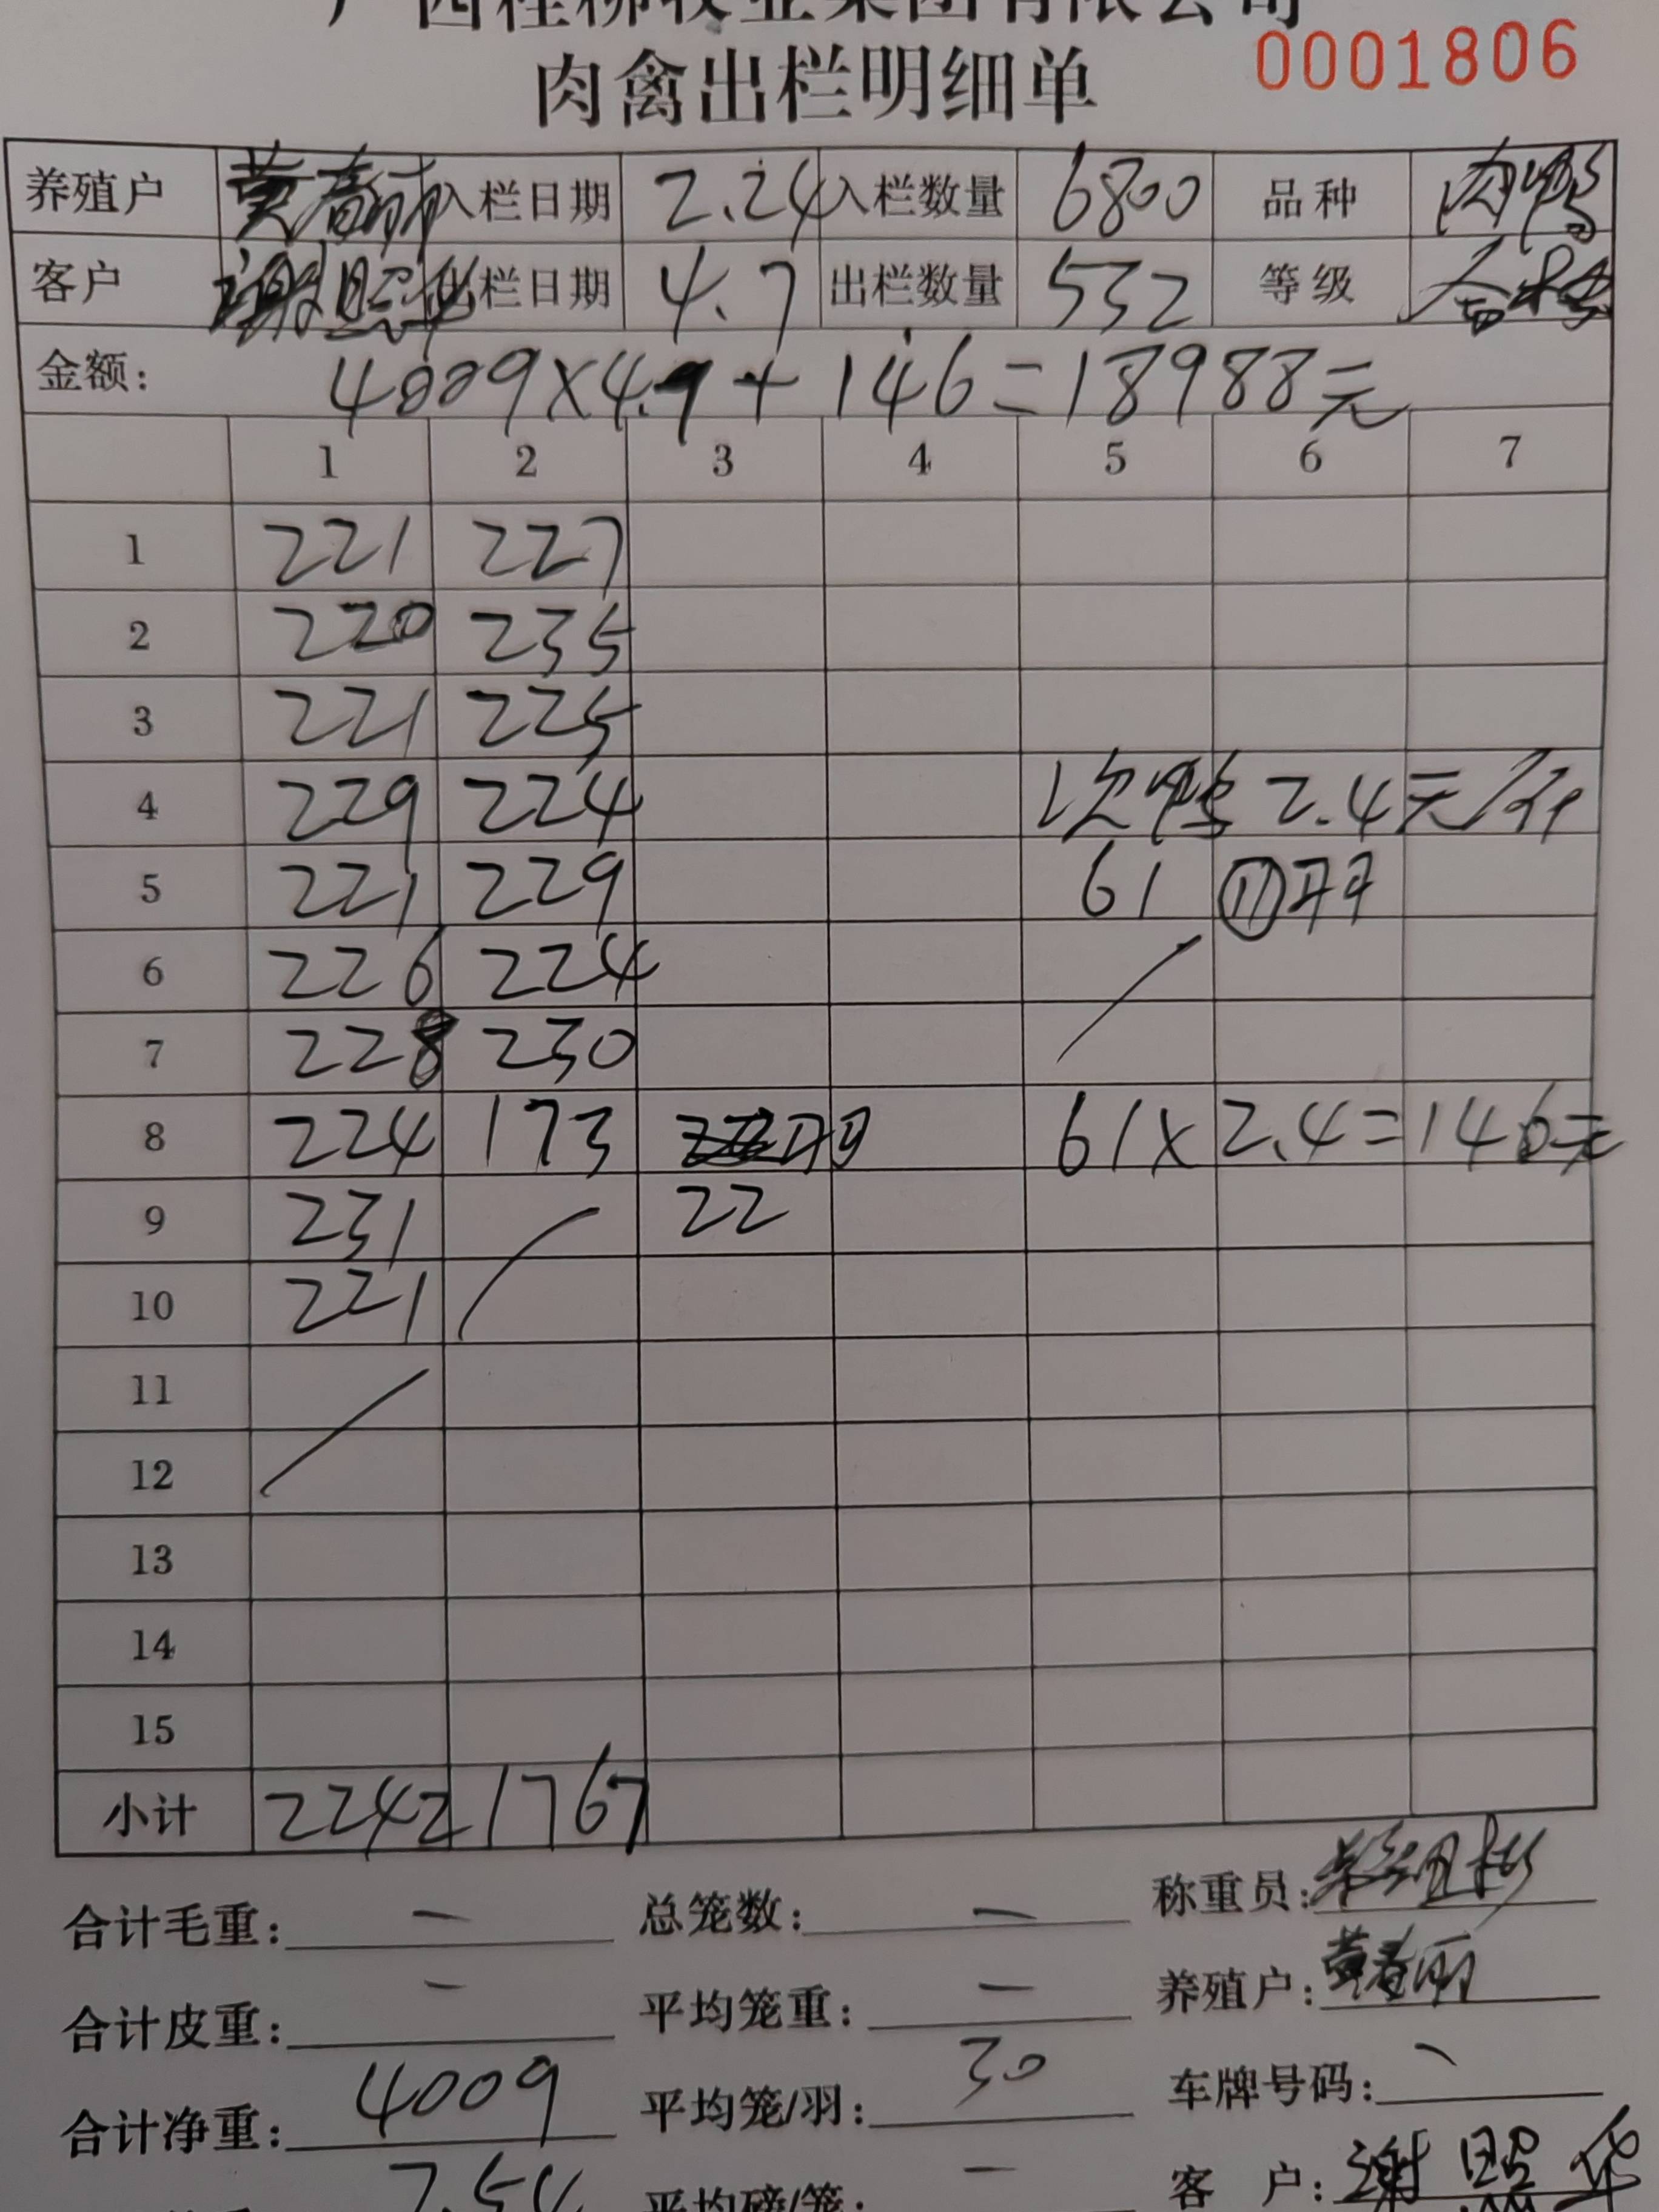 广西桂柳牧业集团有限公司
肉禽出栏明细单 0001806
养殖户 黄春丽 入栏日期 2.24 入栏数量 6800 品种 肉鸭
客户 谢照华 栏日期 4.7 出栏数量 532 等级 合格
金额: 4009×4.7+146=18988元
1 2 3 4 5 6 7
1 221 227
2 220 235
3 221 225
4 229 224 次鸭 2.4元/斤
5 221 229 61 ⑪羽
6 226 224
7 228 230
8 224 173 羽 61×2.4=146元
9 231 22
10 221
11
12
13
14
15
小计 2242 1767
合计毛重: — 总笼数: — 称重员:
合计皮重: — 平均笼重: — 养殖户: 黄春丽
合计净重: 4009 平均笼/羽: 30 车牌号码:
7.54 平均磅/笼: — 客 户: 谢照华